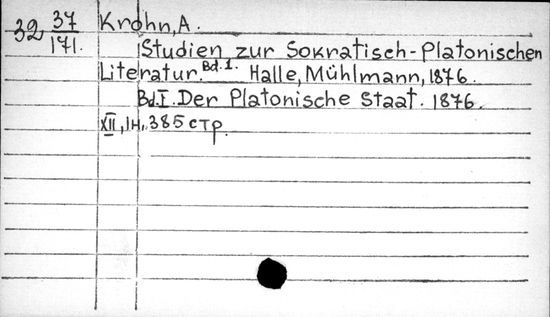 32 37/171. Krohn, A.
Studien zur Sokratisch-Platonischen
Literatur. Bd. 1. Halle, Mühlmann, 1876.
Bd. I. Der Platonische Staat. 1876.
XII, 1н., 385 стр.